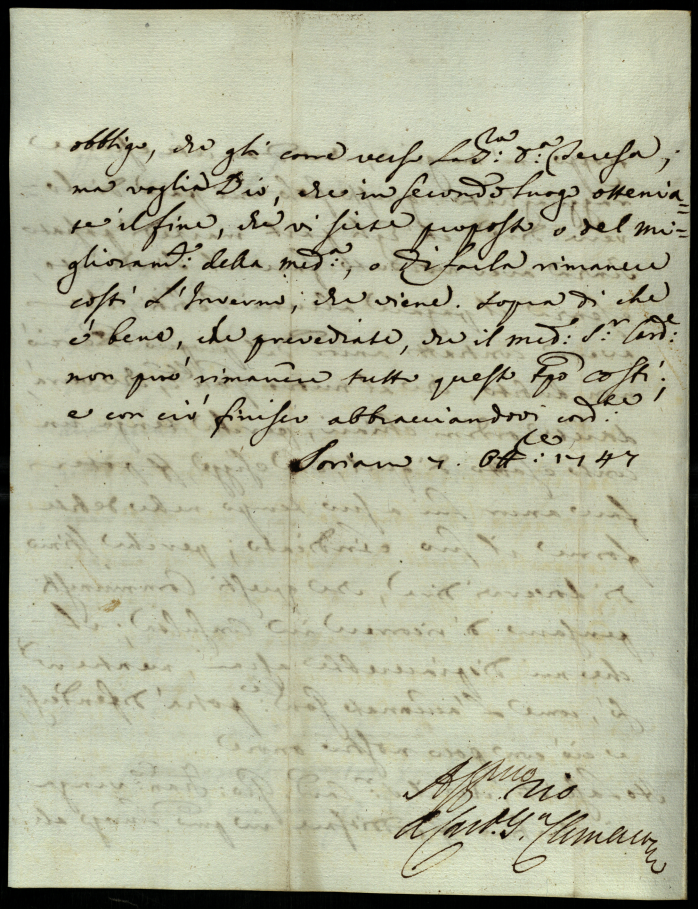 obbligo, che gli corre verso la Sra: Da: Teresa;
ma voglia Dio, che in secondo luogo ottenia=
te il fine, che vi siete proposto o del mi=
glioramto: della meda:, o di farla rimanere
costì l'Inverno, che viene. Sopra di che
è bene, che prevediate, che il med: Sr: Card:
non può rimanere tutto questo tpo costì;
e con ciò finisco abbracciandovi cordte:
Soriano 7. Ottce: 1747
Affmo Zio